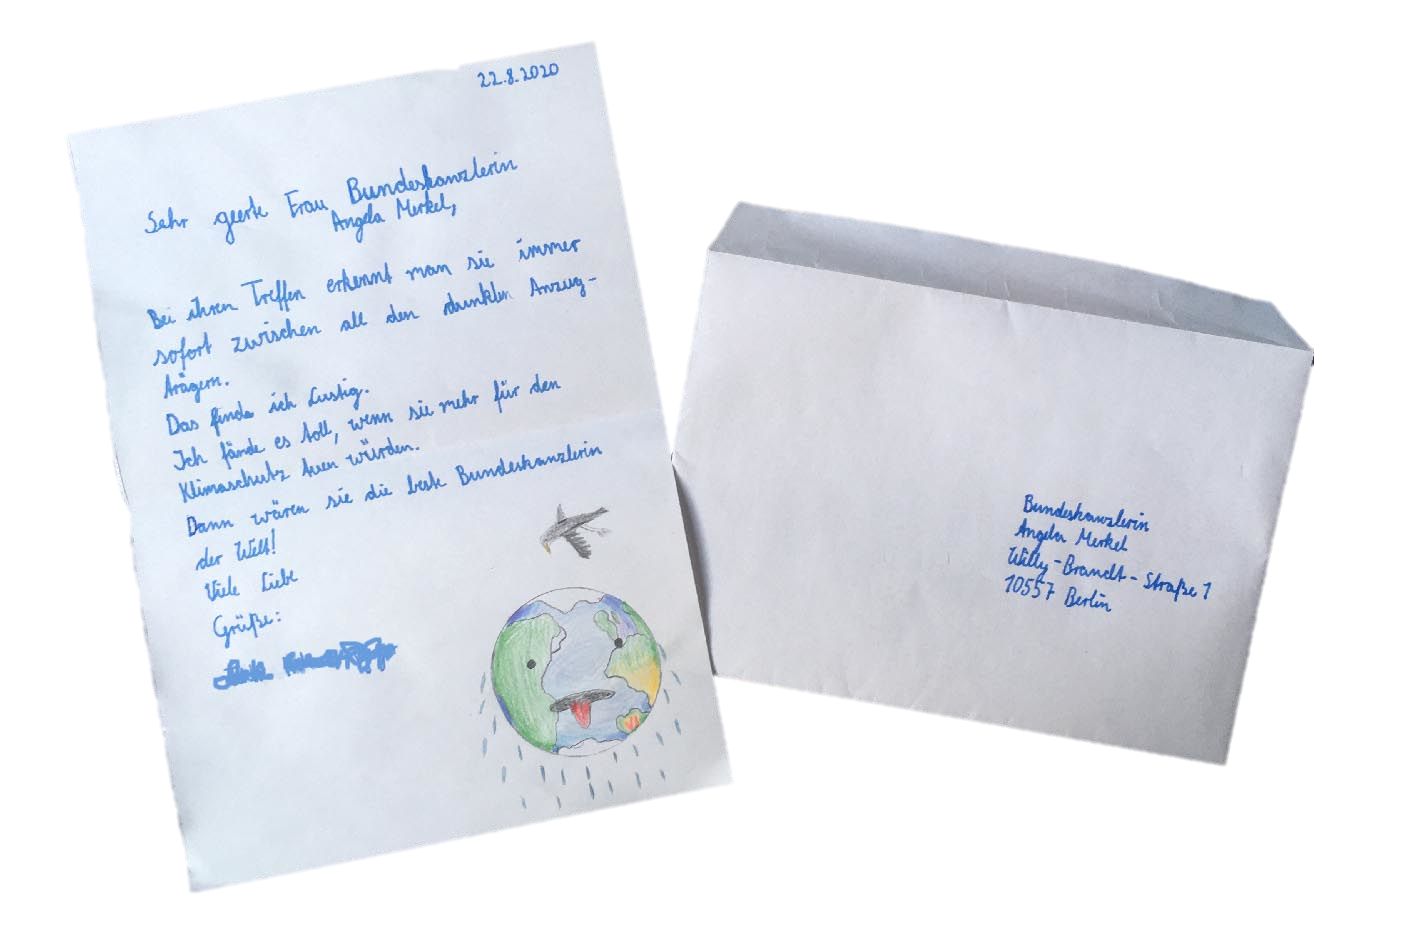 22.8.2020
Sehr geerte Frau Bundeskanzlerin
Angela Merkel,
Bei ihren Treffen erkennt man sie immer
sofort zwischen all den dunklen Anzug-
trägern.
Das finde ich Lustig.
Ich fände es toll, wenn sie mehr für den
Klimaschutz tuen würden.
Dann wären sie die beste Bundeskanzlerin
der Welt!
Viele Liebe
Grüße:
Bundeskanzlerin
Angela Merkel
Willy-Brandt-Straße 1
10557 Berlin